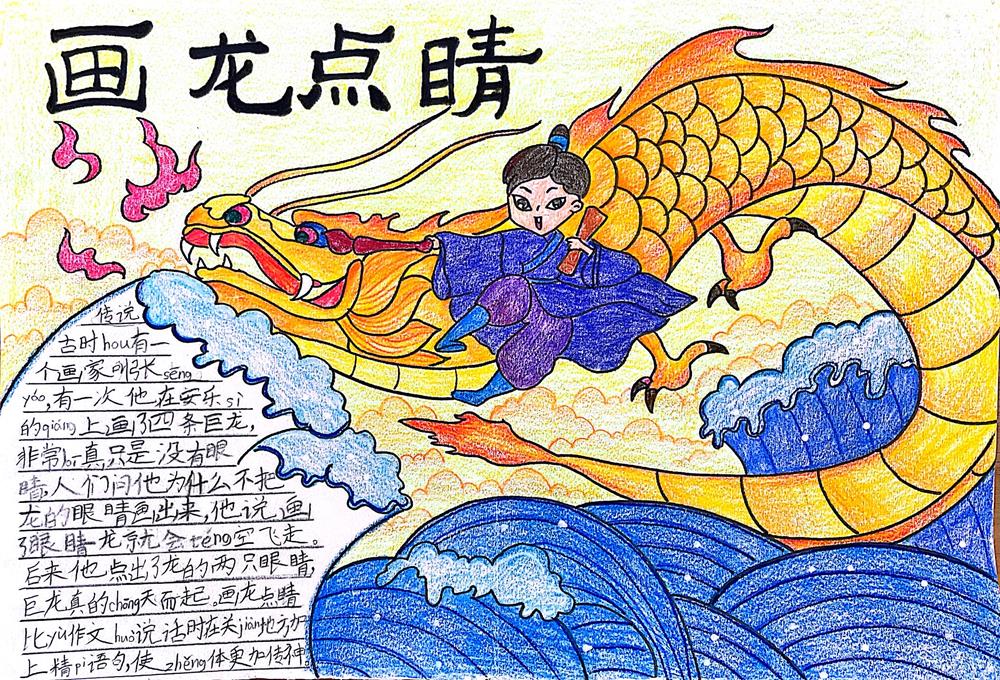 画龙点睛
传说
古时hou有一
个画家叫张sēng
yóo,有一次他在安乐sì
的qiáng上画了四条巨龙,
非常bī真,只是没有眼
睛,人们问他为什么不把
龙的眼睛画出来,他说,画
了眼睛龙就会téng空飞走。
后来他点出了龙的两只眼睛,
巨龙真的chōng天而起。画龙点睛
比yù作文huò说话时在关jiàn地方加
上精pì语句,使zhěng体更加传神。